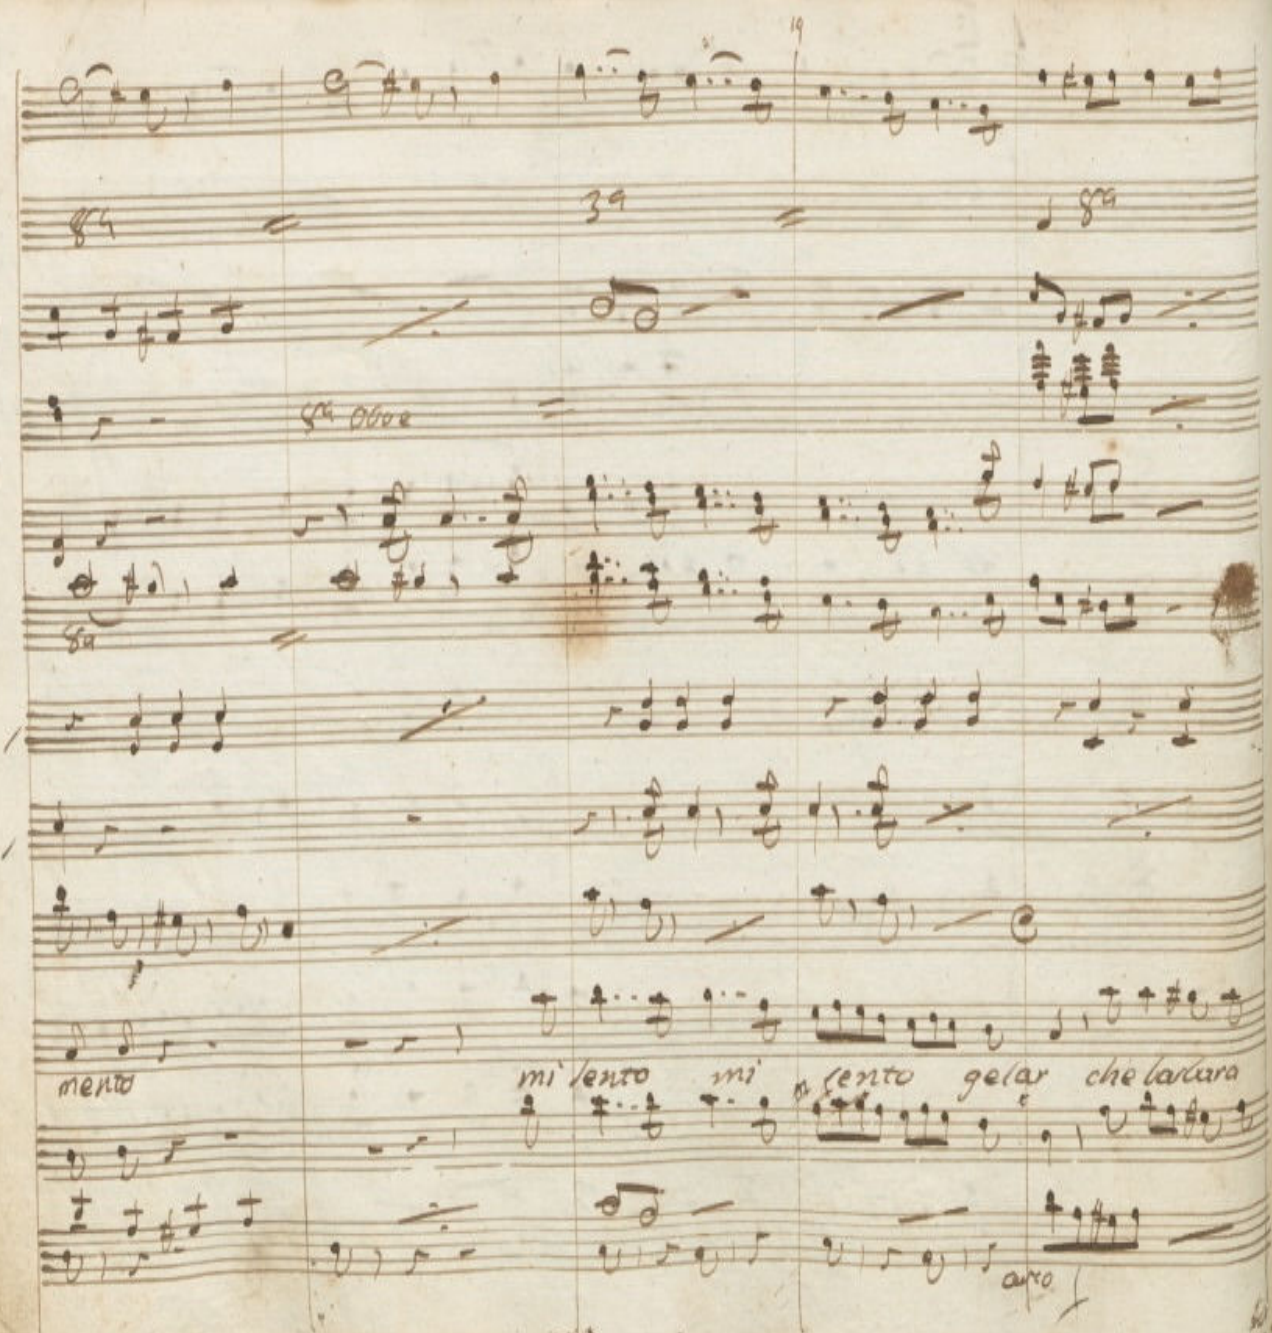 19
8a 3a 8a
8a Oboe
8a
mento mi sento mi sento gelar che barbara
arco f